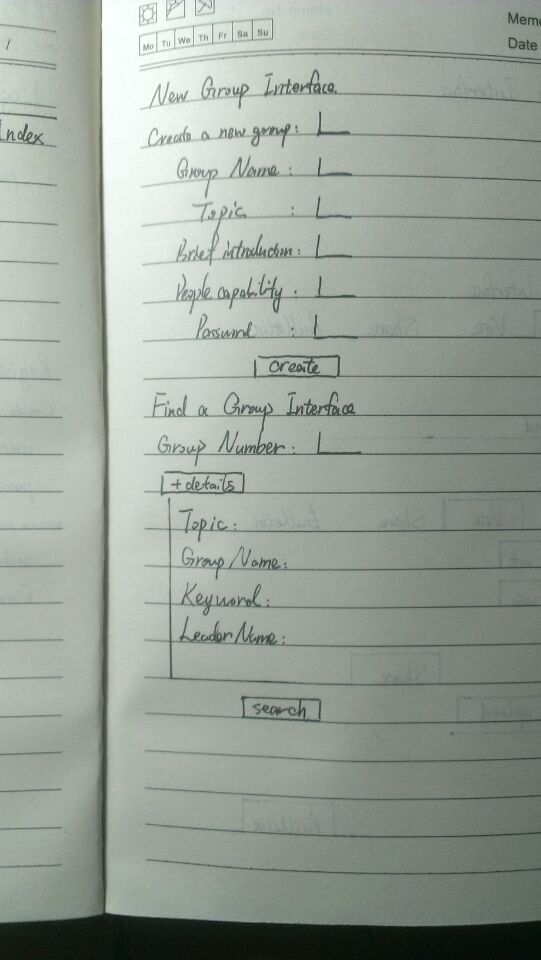 Index
Mo Tu We Th Fr Sa Su
Memo
Date
New Group Interface.
Create a new group:
Group Name:
Topic :
Brief introduction:
People capability:
Password :
create
Find a Group Interface
Group Number:
+details
Topic:
Group Name:
Keyword:
Leader Name:
search